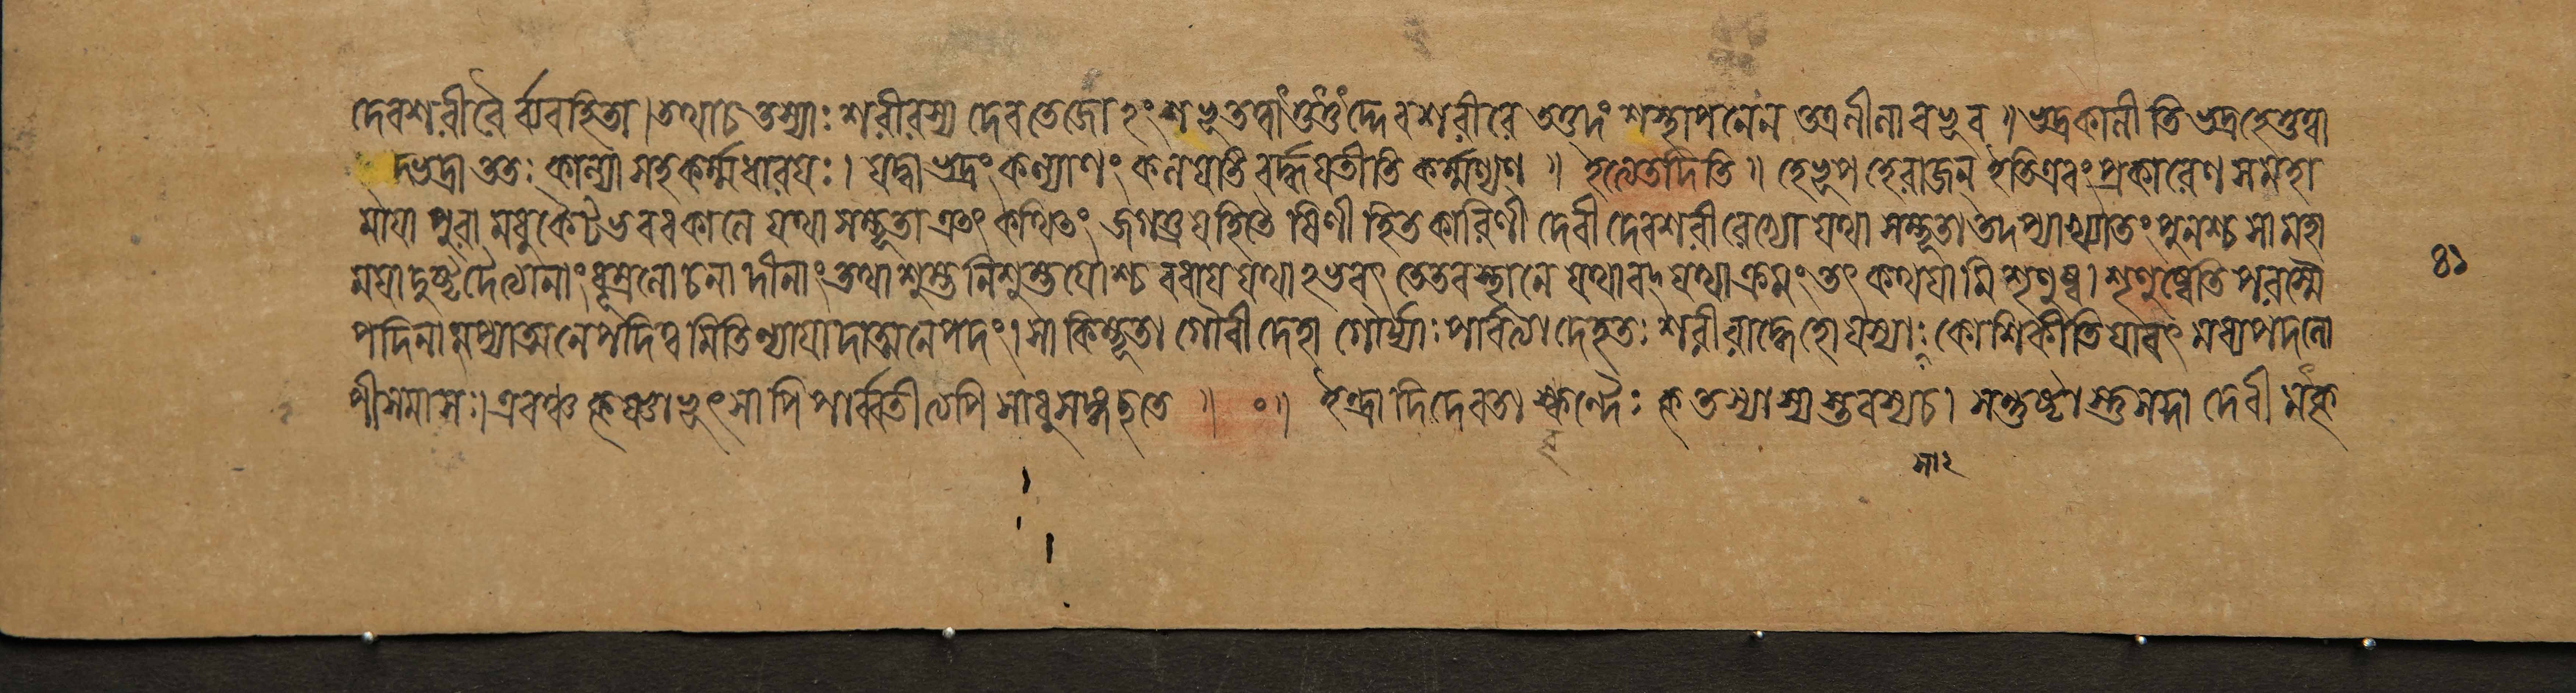 দেবশরীরৈ র্ব্যবহিতা।তথাচ তস্যাঃ শরীরস্য দেবতেজোঽংশভূতত্বাৎ তৎ তদ্দেবশরীরে তত্তদংশস্থাপনেন তত্রলীনাবভূব॥ভদ্রকালীতি ভদ্রহেতুত্বা
দ্ভদ্রা ততঃ কাল্যাসহকর্ম্মধারয়ঃ। যদ্বা ভদ্রং কল্যাণং কলয়তি বর্দ্ধয়তীতি কর্ম্মণ্যণ॥ ইত্যেতদিতি॥ হেভূপ হেরাজন্ ইতিএবংপ্রকারেণ সমহা
মায়া পুরা মধুকৈটভবধকালে যথা সম্ভূতা এতৎ কথিতং জগত্ত্রয়হিতৈষিণী হিতকারিণী দেবী দেবশরীরেভ্যো যথা সম্ভূতা তদপ্যাখ্যাতং পুনশ্চ সামহা
মায়া দুষ্টদৈত্যানাং ধূম্রলোচনাদীনাং তথা শুম্ভনিশুম্ভয়োশ্চ বধায় যথাঽভবৎ তেতবস্থানে যথাবদ্ যথাক্রমং তৎ কথয়ামি শৃণুষ্ব। শৃণুষ্বেতি পরস্মৈ
পদিনামপ্যাত্মনেপদিত্বমিতিন্যায়াদাত্মনেপদং। সা কিম্ভূতা গৌরীদেহা গৌর্য্যাঃ পার্বত্যা দেহতঃ শরীরাদ্দেহোযস্যাঃ কৌশিকীতিযাবৎ মধ্যপদলো
পীসমাসঃ।এবঞ্চ কৃষ্ণাভূৎসাপি পার্ব্বতীত্যপি সাধুসঙ্গচ্ছতে॥ ০॥ ইন্দ্রাদিদেবতা কৃতস্যাস্যস্তবস্যচ। সন্তুষ্টাস্তুসদা দেবী
৪১